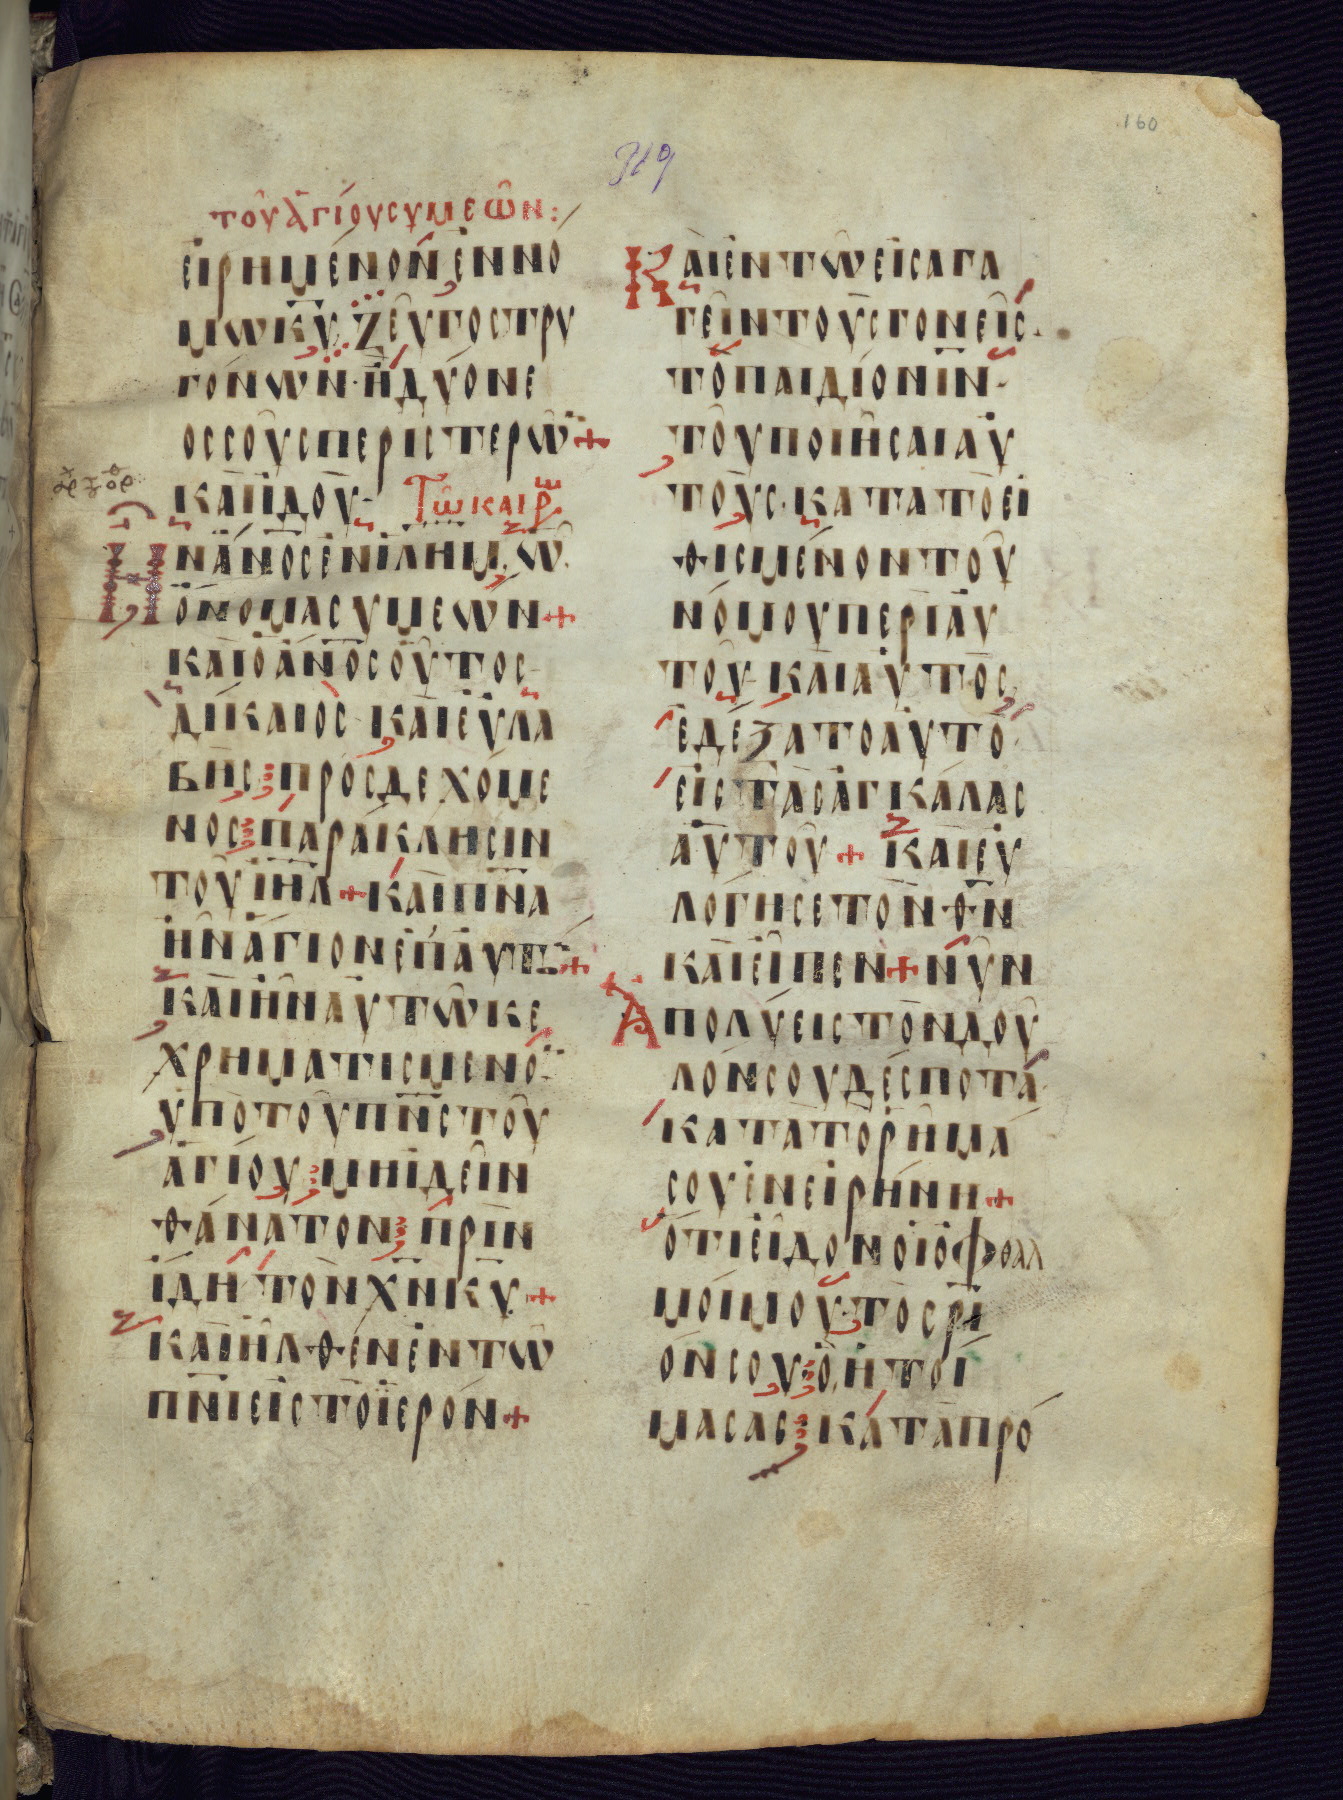 160
319
τοῦ ἁγίου συμεῶν:
εἰρημένον ἐν νό
μω κ̅υ̅ ζεῦγος τρυ
γόνων· ἢ δύο νε
οσσοὺς περιστερῶ̅ +
καὶ ἰδοὺ· Τῶ καιρῶ
Ἦν ἀ̅ν̅ο̅ς ἐν ἰ̅λ̅η̅μ̅, ὧ
ὄνομα συμεών +
καὶ ὁ ἀ̅ν̅ο̅ς οὗτος
δίκαιος καὶ εὐλα
βὴς προσδεχόμε
νος παράκλησιν
τοῦ ἰ̅η̅λ̅ + καὶ π̅ν̅α̅
ἦν ἅγιον ἐπ' αὐτὸ̅ +
καὶ ἦν αὐτῶ κε
χρηματισμένο̅
ὑπὸ τοῦ π̅ν̅ς̅ τοῦ
ἁγίου μὴ ἰδεῖν
θάνατον πρὶν
ἴδη τὸν χ̅ν̅ κ̅υ̅ +
καὶ ἦλθεν ἐν τῶ
π̅ν̅ι̅ εἰς τὸ ἱερόν +
Καὶ ἐν τῶ εἰσαγα
γεῖν τοὺς γονεῖς
τὸ παιδίον ι̅ν̅
τοῦ ποιῆσαι αὐ
τοὺς κατὰ τὸ εἰ
θισμένον τοῦ
νόμου περὶ αὐ
τοῦ· καὶ αὐτὸς
ἐδέξατο αὐτὸ
εἰς τὰς ἀγκάλας
αὐτοῦ + καὶ εὐ
λόγησε τὸν θ̅ν̅
καὶ εἶπεν + νῦν
Ἀπολύεις τὸν δοῦ
λόν σου δέσποτα
κατὰ τὸ ῥῆμά
σου ἐν εἰρήνη +
ὅτι εἶδον οἱ ὀφθαλ
μοί μου τὸ σ̅ρ̅ι̅
όν σου ὃ ἡτοί
μασας κατὰ πρό